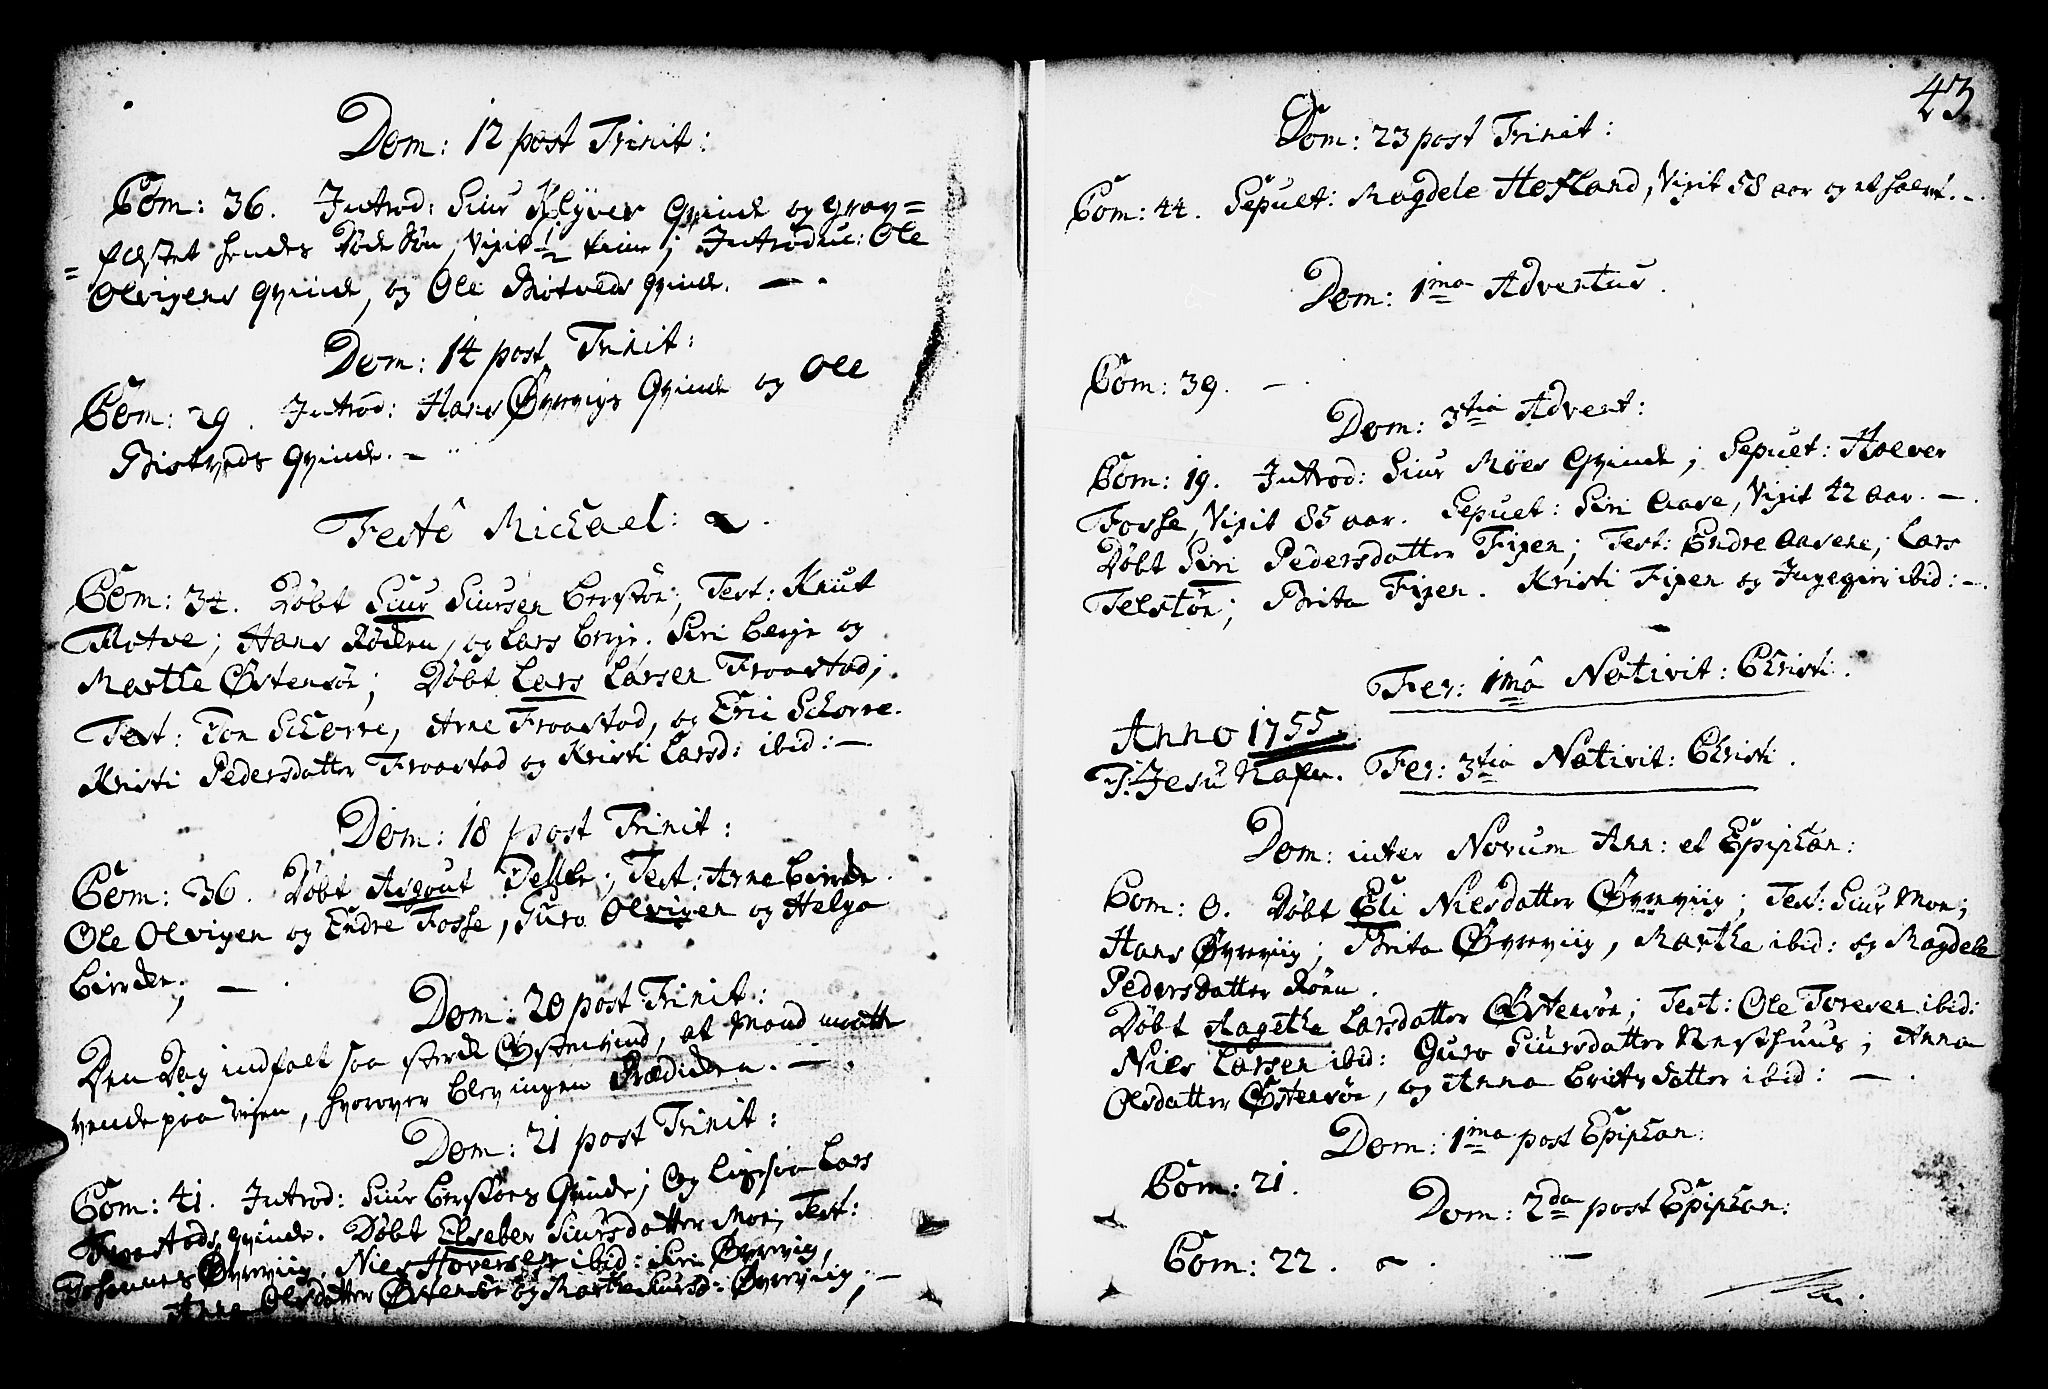 Dom: 12 post Trinit:
Com: 36. Introd: Siur Klyver Qvinde og Grav=
=festet hendes Døde Søn, Vixit ½ time; Introduc: Ole
Olvigens Qvinde, og Ole Biotveds Qvinde. —.
Dom: 14 post Trinit:
Com: 29. Introd: Hans Øvrevigs Qvinde og Ole
Biotveds Qvinde. —
Festô Michael:
Com: 34. Døbt Siur Siursen Berstøe; Test: Knut
Motve; Hans Røden, og Lars Berje. Siri Berje og
Marthe Østensøe; Døbt Lars Larsen Froastad;
Test: Jon Schorre, Arne Froastad, og Eric Schorre.
Kristi Pedersdatter Froastad og Kristi Larsd: ibid: —
Dom: 18 post Trinit:
Com: 36. Døbt Asgout; Test: Arne
Ole Olvigen og Endre Fosse, Guro Olvigen og Helga
—.
Dom: 20 post Trinit:
Den Dag indfalt saa sterck Østenvind, at Mand maatte
vende paa veien, hvorover blev ingen Prædicken. —.
Dom: 21 post Trinit:
Com: 41. Introd: Siur Berstøes Qvinde; Og ligesaa Lars
Froastads qvinde. Døbt Elseber Siursdatter Moe; Test:
Johannes Øvreviig, Niels Hoversen ibid: Siri Øvreviig,
Anna Olsdatter Østensøe og Marthe Siursd: Øvreviig; —
43
Dom: 23 post Trinit:
Com: 44. Sepult: Magdele Hefland, Vixit 58 aar og et halvt. —.
Dom: 1ma Adventus.
Com: 39. —.
Dom: 3tia Advent:
Com: 19. Introd: Siur Møes Qvinde; Sepult: Holver
Fosse, Vixit 85 aar. Sepult: Siri Aase, Vixit 42 aar. —.
Døbt Siri Pedersdatter Fixen; Test: Endre Aasene, Lars
Telstøe; Brita Fixen. Kristi Fixen og Ingegier ibid: —.
Fer: 1mâ Nativit: Christi.
Anno 1755.
I Jesu Nafn. Fer: 3tia Nativit: Christi.
Dom: inter Novum Ann: et Epiphan:
Com: 0. Døbt Eli Nielsdatter Øvreviig; Test: Siur Moe;
Hans Øvreviig; Brita Øvreviig, Marthe ibid: og Magdele
Pedersdatter Røen.
Døbt Aagethe Larsdatter Østensøe; Test: Ole Toresen ibid:
Niels Larsen ibid: Guro Siursdatter Nesthuus; Anna
Olsdatter Østensøe, og Anna Brietsdatter ibid: —.
Dom: 1ma post Epiphan:
Com: 21.
Dom: 2da post Epiphan:
Com: 22. —